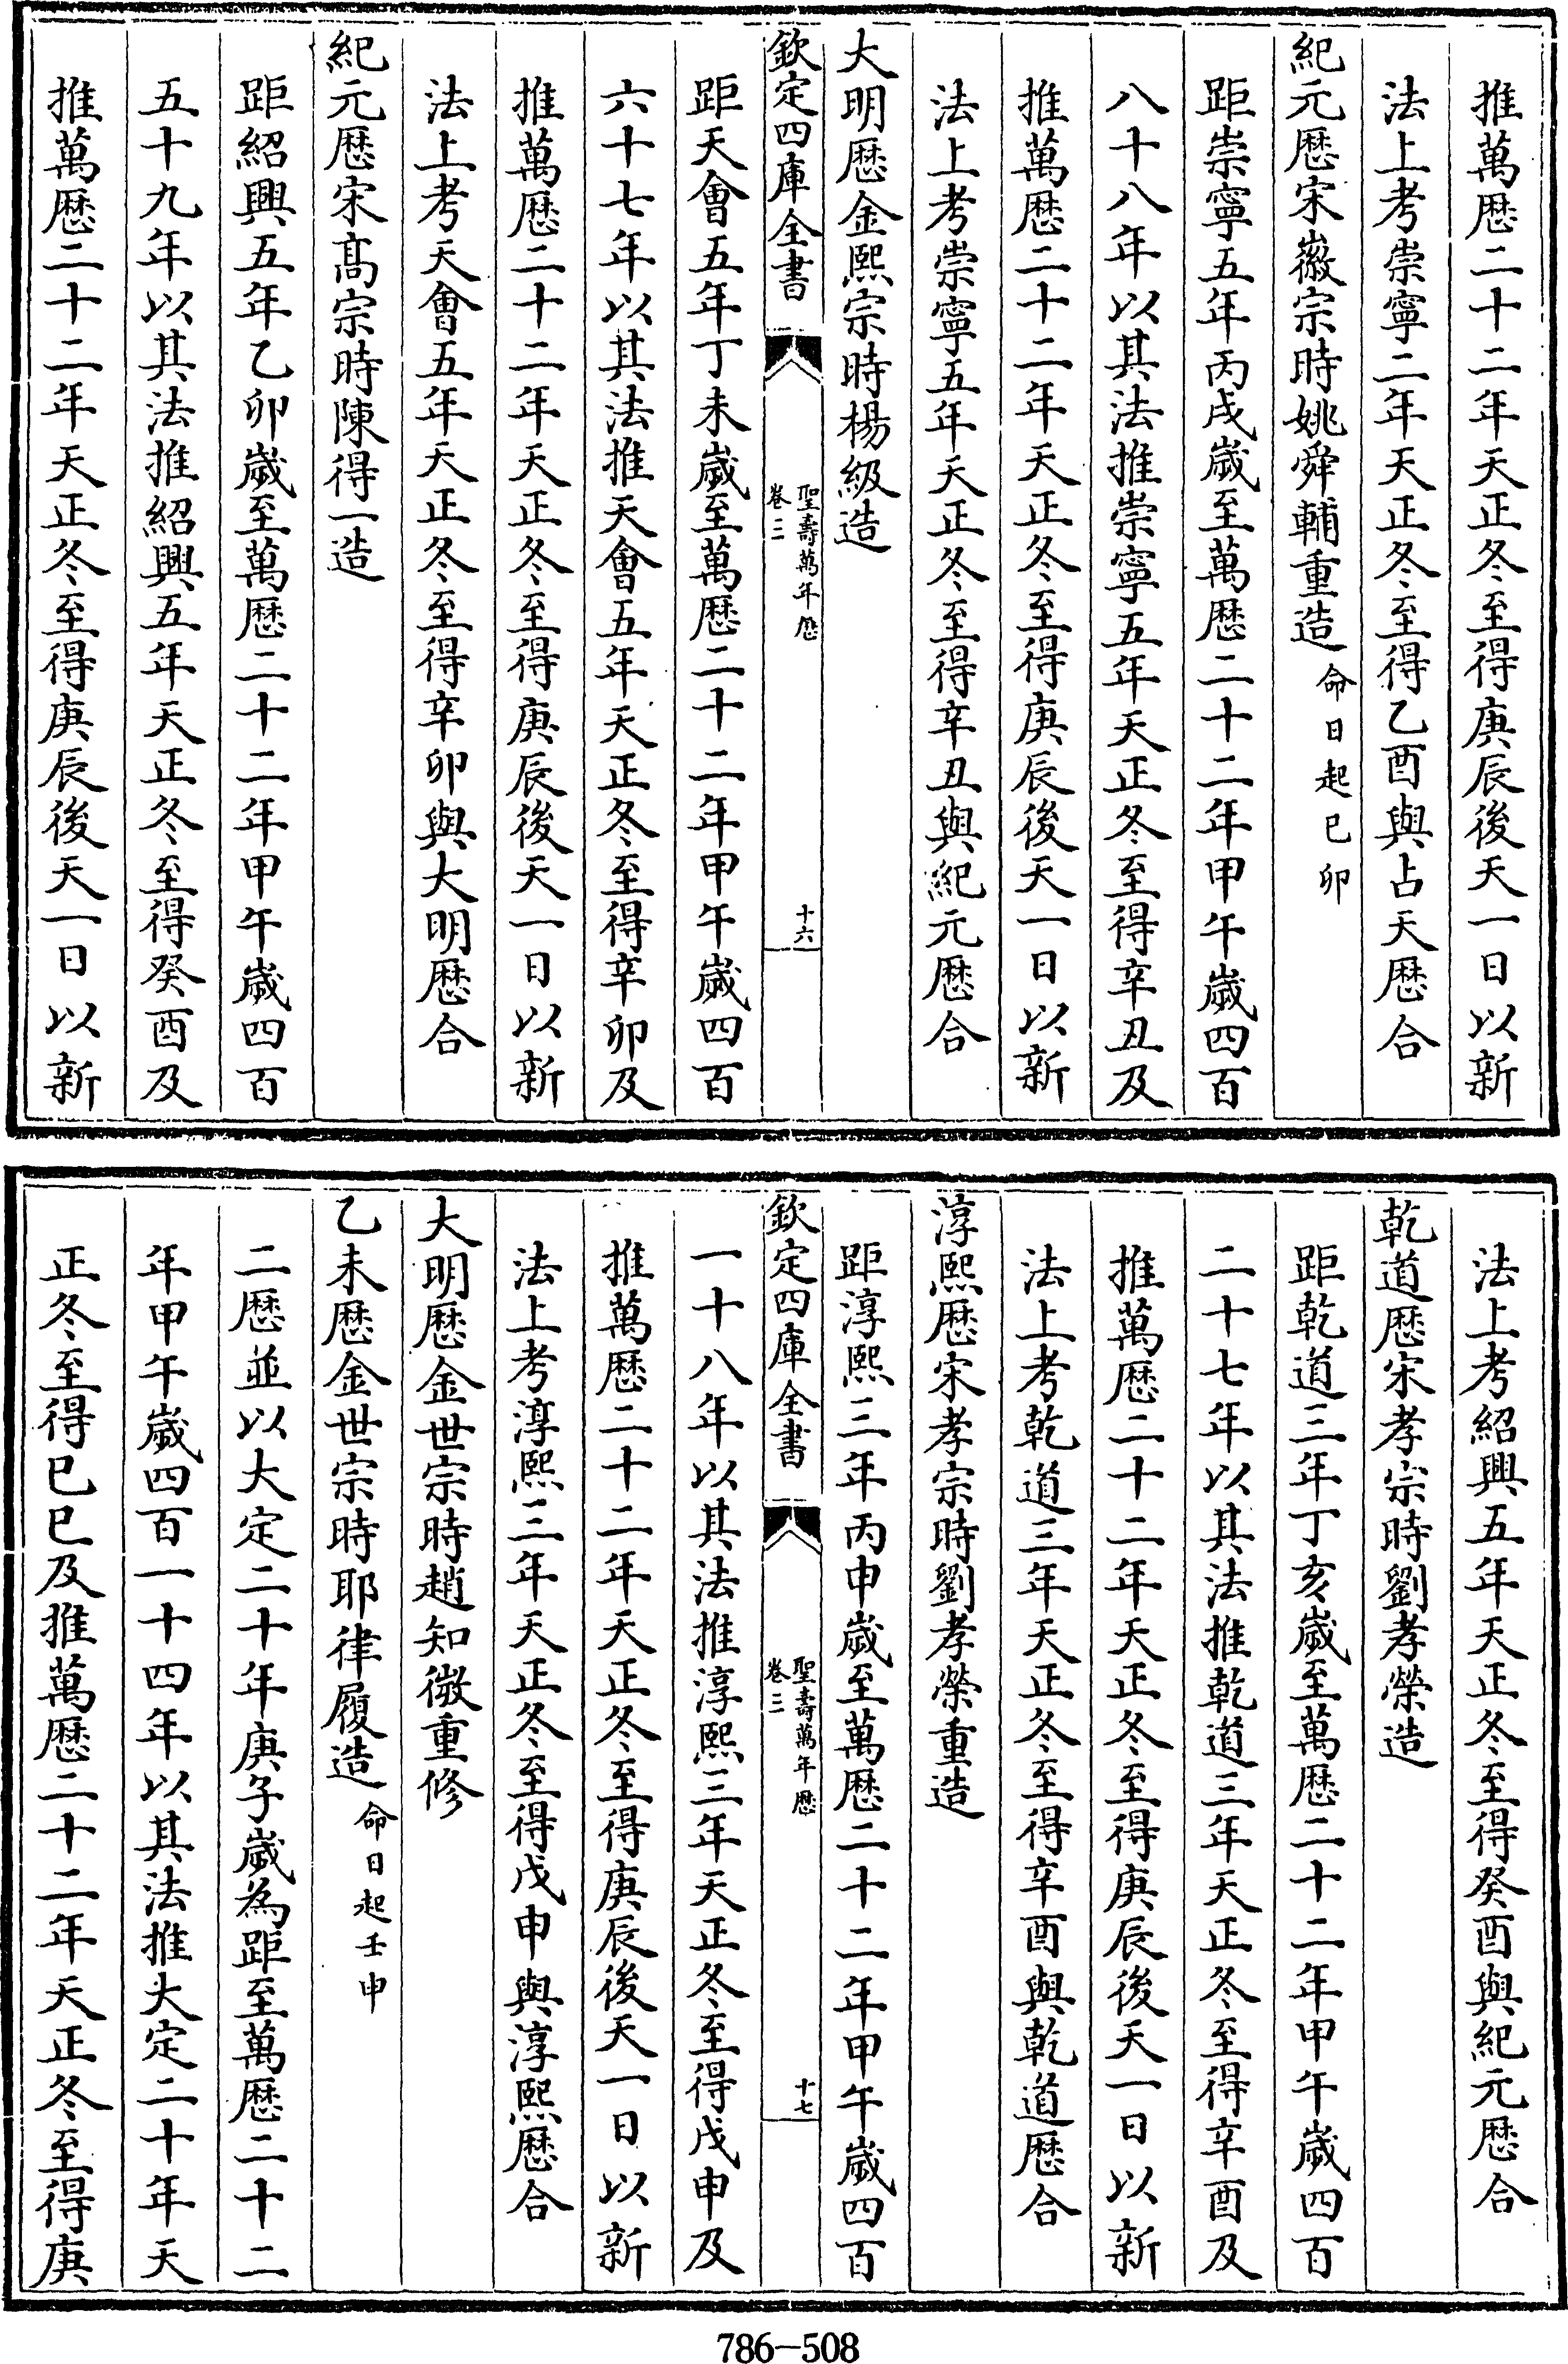 推萬厯二十二年天正冬至得庚辰後天一日以新
法上考崇寧二年天正冬至得乙酉與占天厯合
紀元厯宋徽宗時姚舜輔重造命日起己卯
距崇寧五年丙戌歲至萬厯二十二年甲午歲四百
八十八年以其法推崇寧五年天正冬至得辛丑及
推萬厯二十二年天正冬至得庚辰後天一日以新
法上考崇寧五年天正冬至得辛丑與紀元厯合
大明厯金熙宗時楊級造
欽定四庫全書
聖壽萬年厯
卷二
十六
距天會五年丁未歲至萬厯二十二年甲午歲四百
六十七年以其法推天會五年天正冬至得辛卯及
推萬厯二十二年天正冬至得庚辰後天一日以新
法上考天會五年天正冬至得辛卯與大明厯合
紀元厯宋髙宗時陳得一造
距紹興五年乙卯歲至萬厯二十二年甲午歲四百
五十九年以其法推紹興五年天正冬至得癸酉及
推萬厯二十二年天正冬至得庚辰後天一日以新
法上考紹興五年天正冬至得癸酉與紀元厯合
乾道厯宋孝宗時劉孝榮造
距乾道三年丁亥歲至萬厯二十二年甲午歲四百
二十七年以其法推乾道三年天正冬至得辛酉及
推萬厯二十二年天正冬至得庚辰後天一日以新
法上考乾道三年天正冬至得辛酉與乾道厯合
淳熙厯宋孝宗時劉孝榮重造
距淳熙三年丙申歲至萬厯二十二年甲午歲四百
欽定四庫全書
聖壽萬年厯
卷二
十七
一十八年以其法推淳熙三年天正冬至得戊申及
推萬厯二十二年天正冬至得庚辰後天一日以新
法上考淳熙三年天正冬至得戊申與淳熙厯合
大明厯金世宗時趙知微重修
乙未厯金世宗時耶律履造命日起壬申
二厯並以大定二十年庚子歲為距至萬厯二十二
年甲午歲四百一十四年以其法推大定二十年天
正冬至得巳巳及推萬厯二十二年天正冬至得庚
786-508